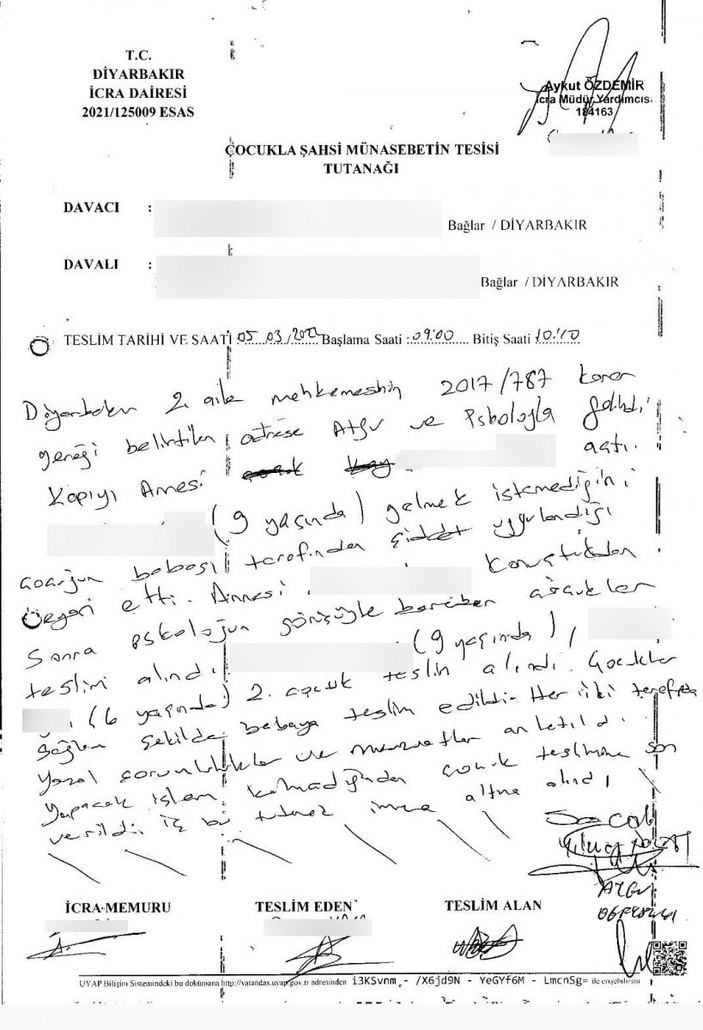 T.C.
DİYARBAKIR
İCRA DAİRESİ
2021/125009 ESAS
Aykut ÖZDEMİR
İcra Müdür Yardımcıs
184163
ÇOCUKLA ŞAHSİ MÜNASEBETİN TESİSİ
TUTANAĞI
DAVACI :
Bağlar / DİYARBAKIR
DAVALI :
Bağlar / DİYARBAKIR
TESLİM TARİHİ VE SAATİ 05.03/2022 Başlama Saati : 09:00 Bitiş Saati 10:10
Diyarbakır 2. aile mahkemesinin 2017/787 karar
gereği belirtilen adrese ve Psikologla gelindi
Kapıyı Annesi açtı.
(9 yaşında) gelmek istemediğini
çocuğun babası tarafından şiddet uygulandığı
etti. Annesi Konuştuktan
Sonra psikoloğun görüşüyle beraber çocuklar
teslim alındı. (9 yaşında),
(6 yaşında) 2. çocuk teslim alındı. Çocuklar
Sağlam şekilde babaya teslim edildi. Her iki tarafada
yasal sorumluluklar ve mevzuatlar anlatıldı.
Yapacak işlem kalmadığından çocuk teslimine son
verildi. iş bu tutanak imza altına alındı
İCRA MEMURU TESLİM EDEN TESLİM ALAN
UYAP Bilişim Sistemindeki bu dokümana http://vatandas.uyap.gov.tr adresinden i3KSvnm - /X6jd9N - YeGYf6M - LmcnSg= ile erişebilirsiniz